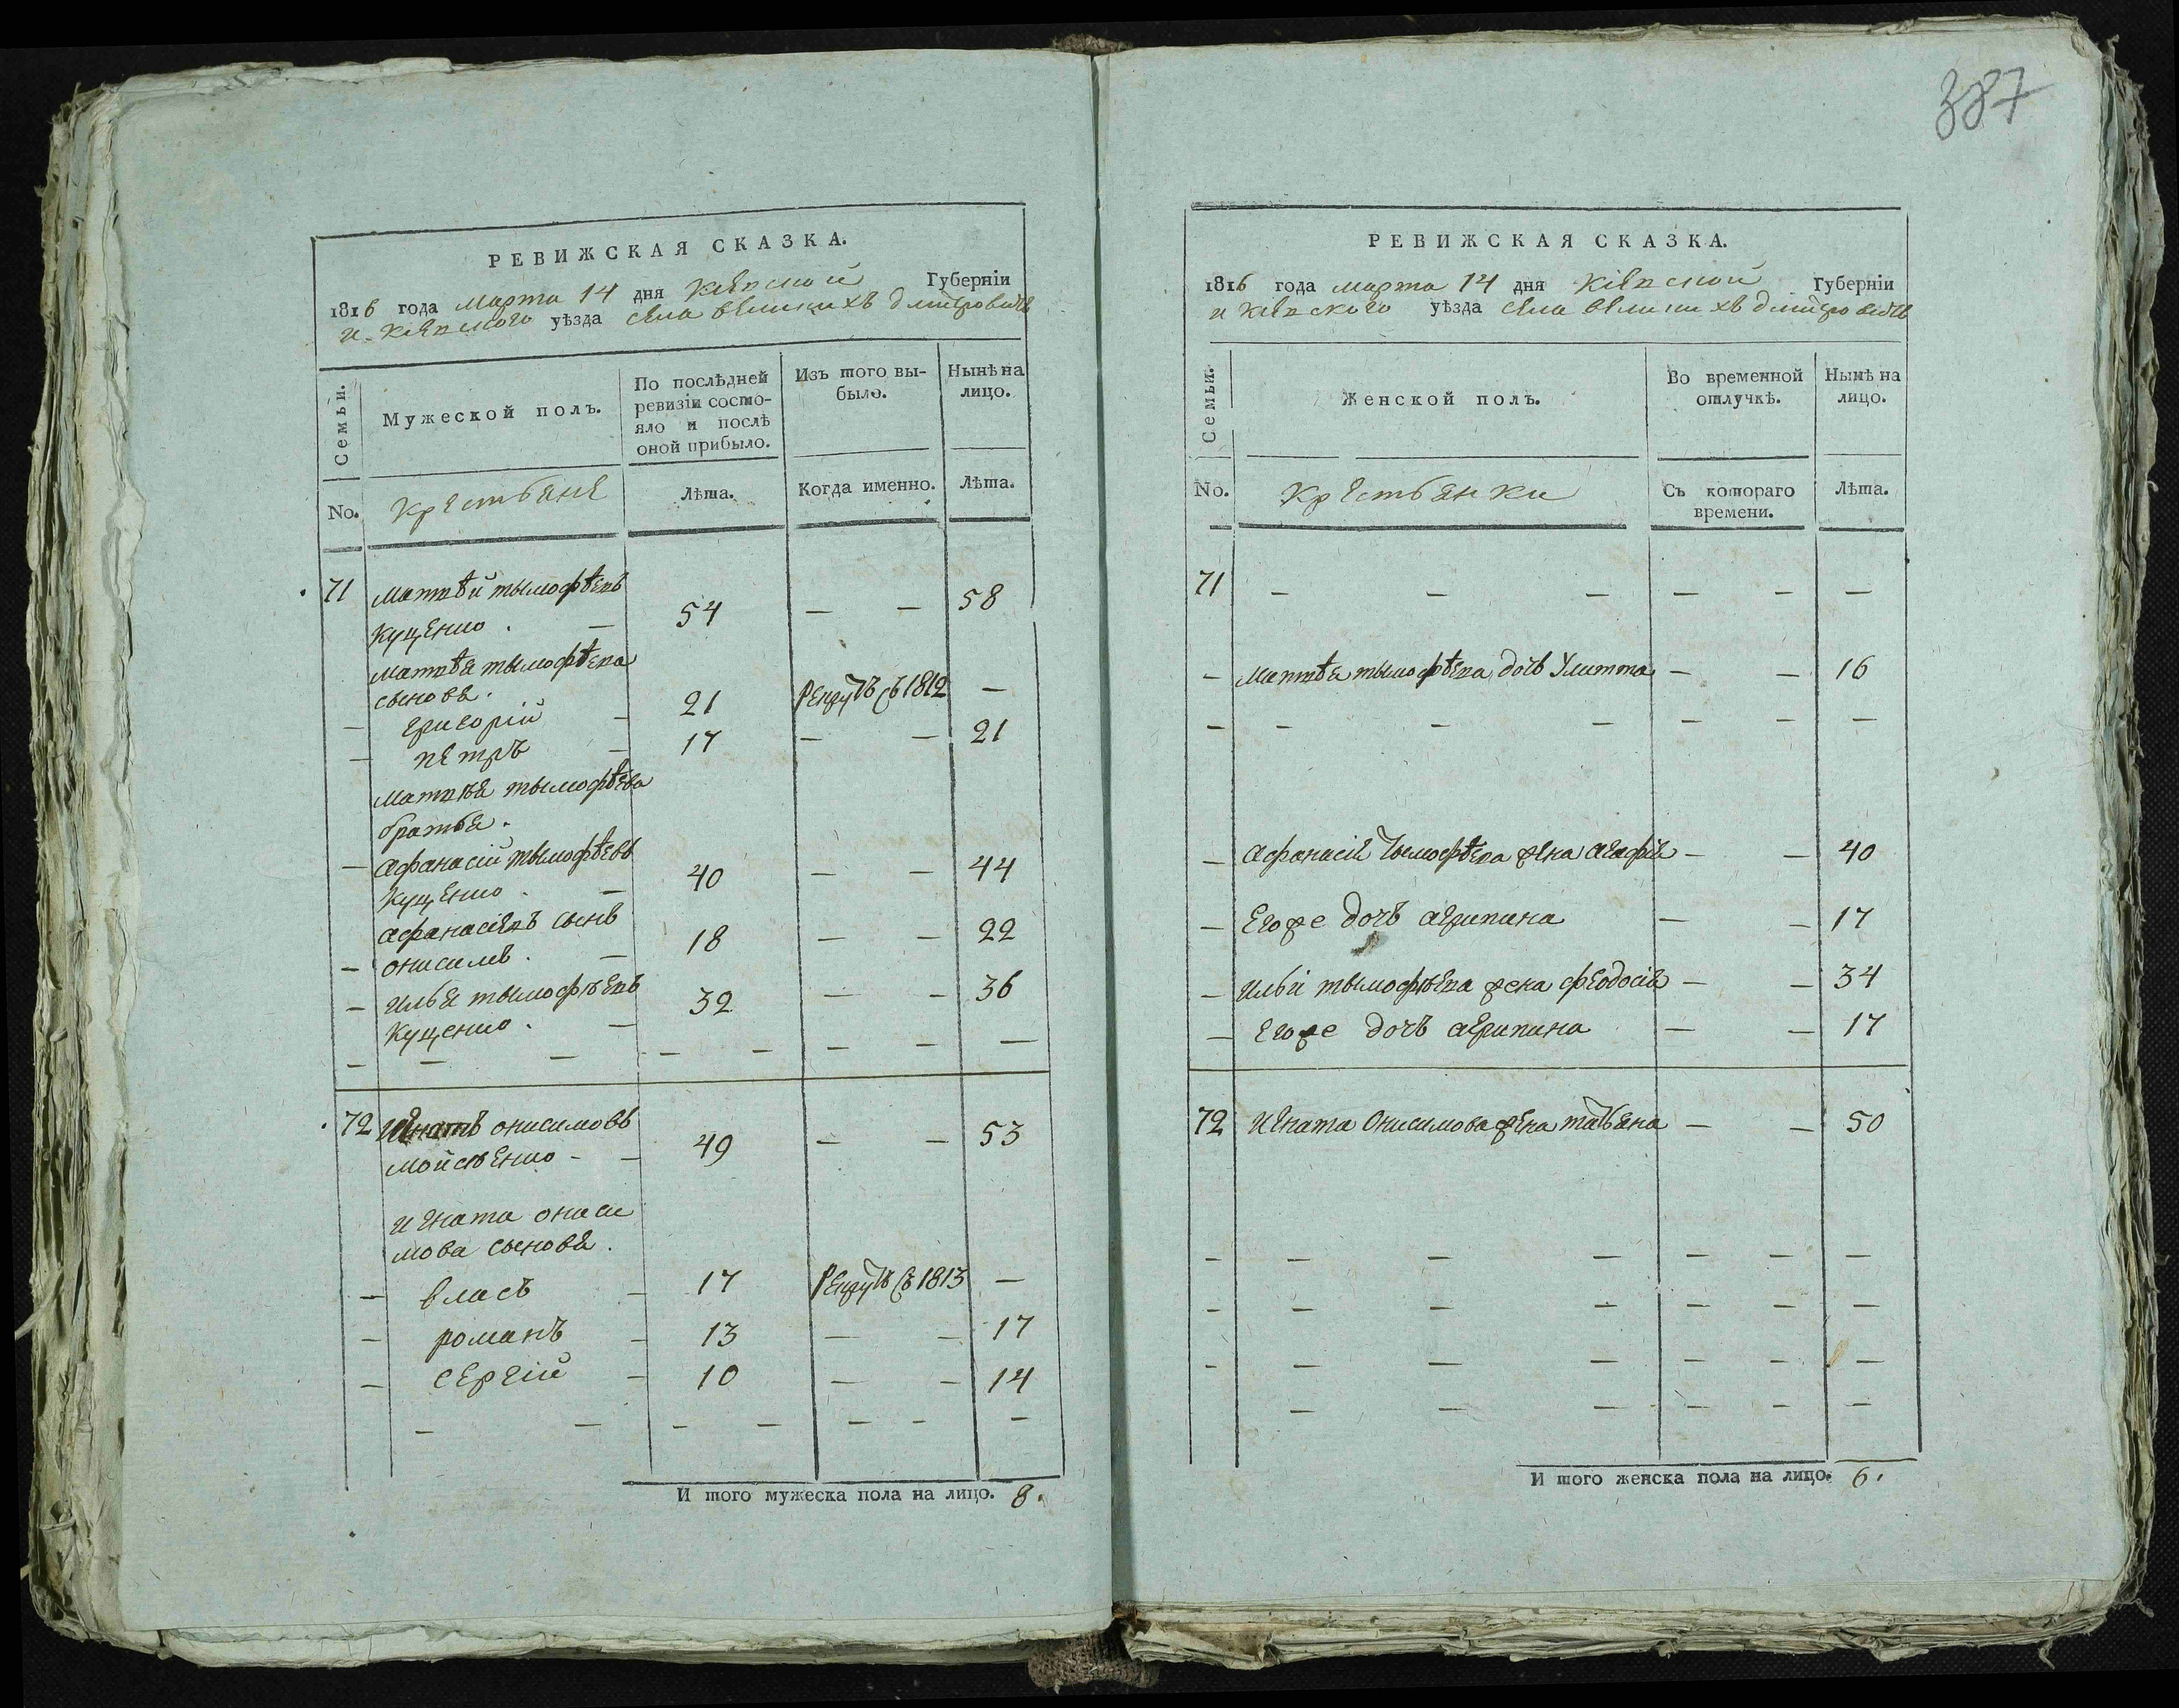 387
РЕВИЖСКАЯ СКАЗКА.
1816 года марта 14 дня Кіевской Губерніи
и Кіевского уѣзда села великихъ дмитровичъ
Семьи.
Мужеской полъ.
По послѣдней ревизіи состо-
яло и послѣ
оной прибыло.
Изъ того вы-
было.
Нынѣ на
лицо.
No.
Крестьяне
Лѣта.
Когда именно.
Лѣта.
71 Матвѣй тымофѣевъ
Куценко . — 54 — — 58
Матвѣя тымофѣева
сыновя .
— григорій — 21 рекрутъ съ 1812 —
— петръ — 17 — — 21
Матвѣя тымофѣева
братья .
— афанасій тымофѣевъ
Куценко . — 40 — — 44
афанасіевъ сынъ
— онисимъ . — 18 — — 22
— илья тымофѣевъ
Куценко . — 32 — — 36
— — — — — — — —
72 игнатъ онисимовъ
мойсѣенко - — 49 — — 53
игната ониси
мова сыновя .
— власъ — 17 рекрутъ съ 1813 —
— романъ — 13 — — 17
— сергій — 10 — — 14
— — — — — — —
И того мужеска пола на лицо. 8.
РЕВИЖСКАЯ СКАЗКА.
1816 года марта 14 дня Кіевской Губерніи
и Кіевского уѣзда села великихъ дмитровичъ
Семьи.
Женской полъ.
Во временной
отлучкѣ.
Нынѣ на
лицо.
No.
Крестьянки
Съ котораго
времени.
Лѣта.
71 — — — — — —
— Матвѣя тымофѣева дочь Улитта — — 16
— — — — — — —
— афанасія тымофѣева жена агафія — — 40
— Егоже дочъ агрипина — — 17
— ильи тымофѣева жена феодосія — — 34
— Егоже дочъ агрипина — — 17
72 игната Онисимова жена татіана — — 50
— — — — — — —
— — — — — — —
— — — — — — —
— — — — — —
И того женска пола на лицо. 6.